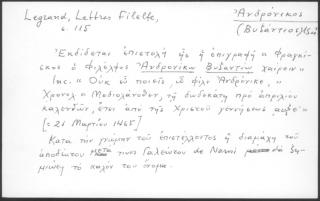 Legrand, Lettres Filelfe,
σ. 115
Ἀνδρόνικος
(Βυζάντιος)
Ἐκδίδεται ἐπιστολὴ ἧς ἡ ἐπιγραφὴ «Φραγκί-
σκος ὁ Φιλέλφος Ἀνδρονίκῳ Βυζαντίῳ χαίρειν»
Inc. «Οὐκ εὖ ποιεῖς ὦ φίλε Ἀνδρόνικε,..
Χρονολ. «Μεδιολάνοθεν, τῇ δωδεκάτῃ πρὸ ἀπριλίου
καλενδῶν, ἔτει ἀπὸ τῆς Χριστοῦ γεννήσεως αυξε'»
[= 21 Μαρτίου 1465]
Κατὰ τὴν γνώμην τοῦ ἐπιστέλλοντος ἡ διαμάχη τοῦ
ἀποδέκτου μετά τινος Γαλεώτου de Narni θὰ ζη-
μιώσῃ τὸ καλόν του ὄνομα.